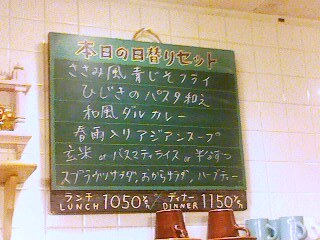 本日の日替りセット
ささみ風青じそフライ
ひじきのパスタ和え
和風ダルカレー
春雨入りアジアンスープ
玄米 or バスマティライス or 半なずつ
スプラウツサラダ、おからサラダ、ハーブティー
ランチ LUNCH 1050 ディナー DINNER 1150